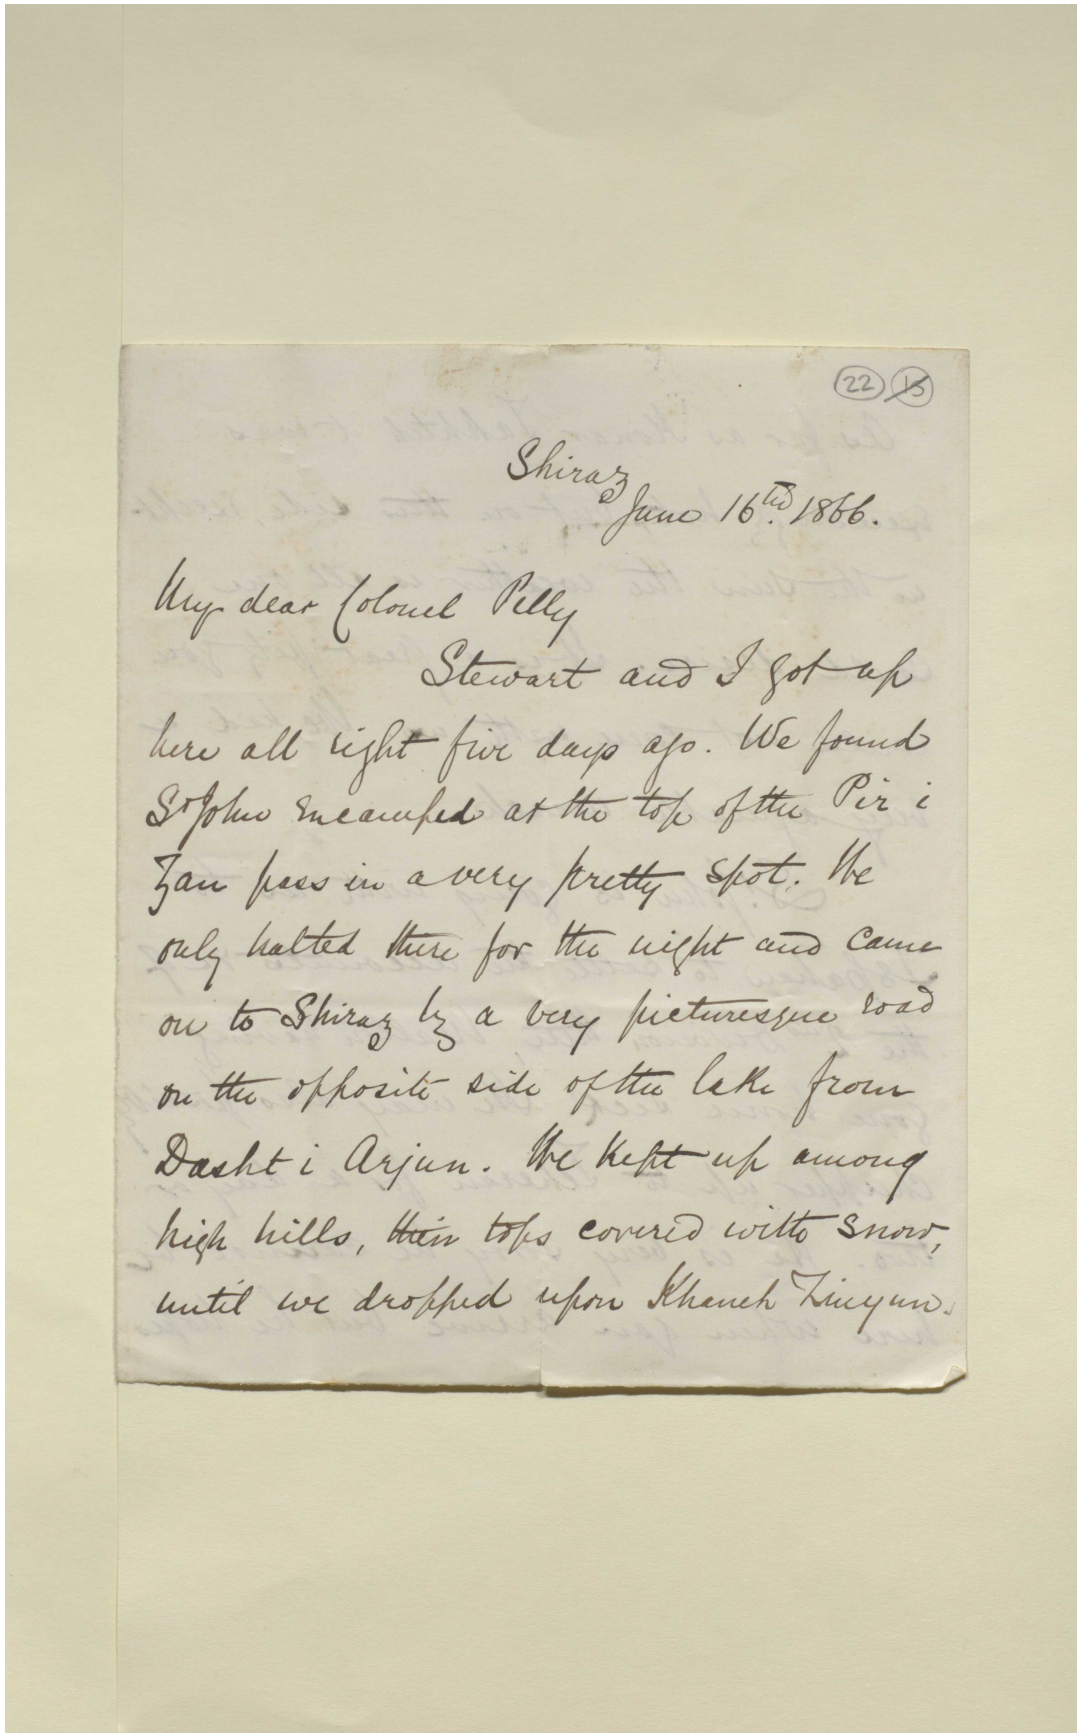 22 15
Shiraz
June 16th. 1866.
My dear Colonel Pelly
Stewart and I got up
here all right five days ago. We found
St John encamped at the top of the Pir i
Zan pass in a very pretty spot. We
only halted there for the night and came
on to Shiraz by a very picturesque road
on the opposite side of the lake from
Dasht i Arjun. We kept up among
high hills, their tops covered with snow,
until we dropped upon Khaneh Zinyun.